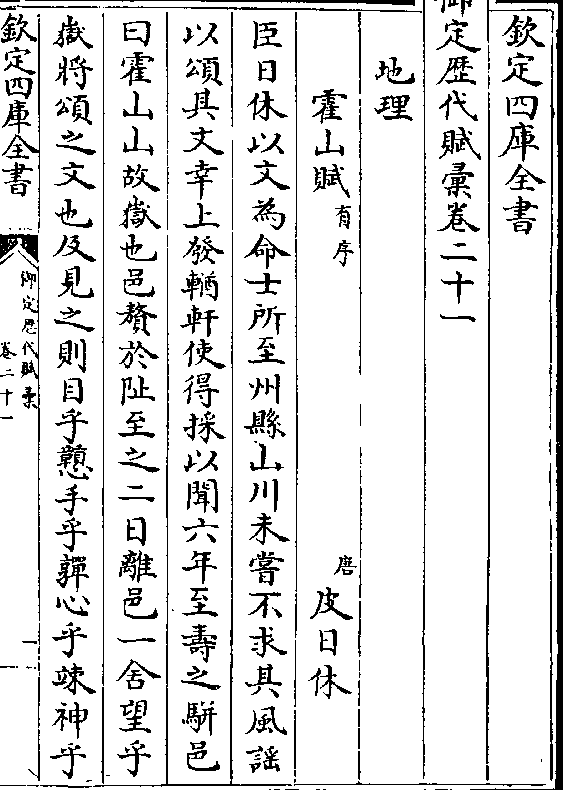 欽定四庫全書
御定歴代賦彙卷二十一
地理
霍山賦有序 唐 皮日休
臣日休以文為命士所至州縣山川未嘗不求其風謡
以頌其文幸上發輶軒使得採以聞六年至壽之駢邑
曰霍山山故嶽也邑贅於阯至之二日離邑一舍望乎
嶽將頌之文也及見之則目乎戇手乎嚲心乎竦神乎
欽定四庫全書
御定歴代賦彙
卷二十一
一